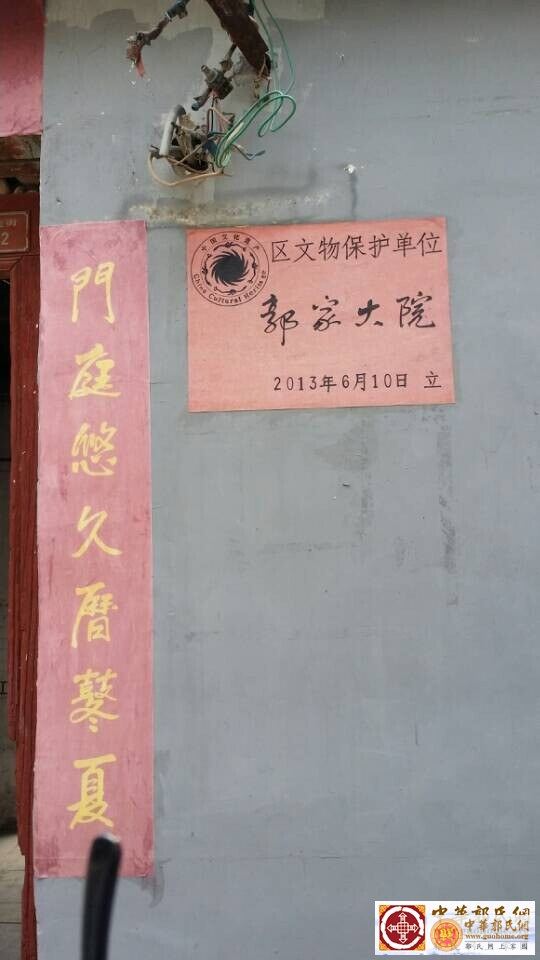 門庭悠久曆鼕夏
中国文化遗产
China Cultural Heritage
区文物保护单位
郭家大院
2013年6月10日 立
2
中華郭氏網
中華郭氏網
www.guohome.org
郭氏网上家園